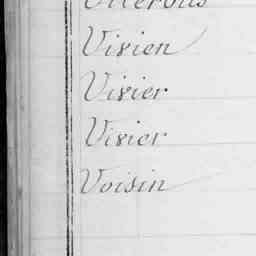 Vivien
Vivier
Vivier
Voisin